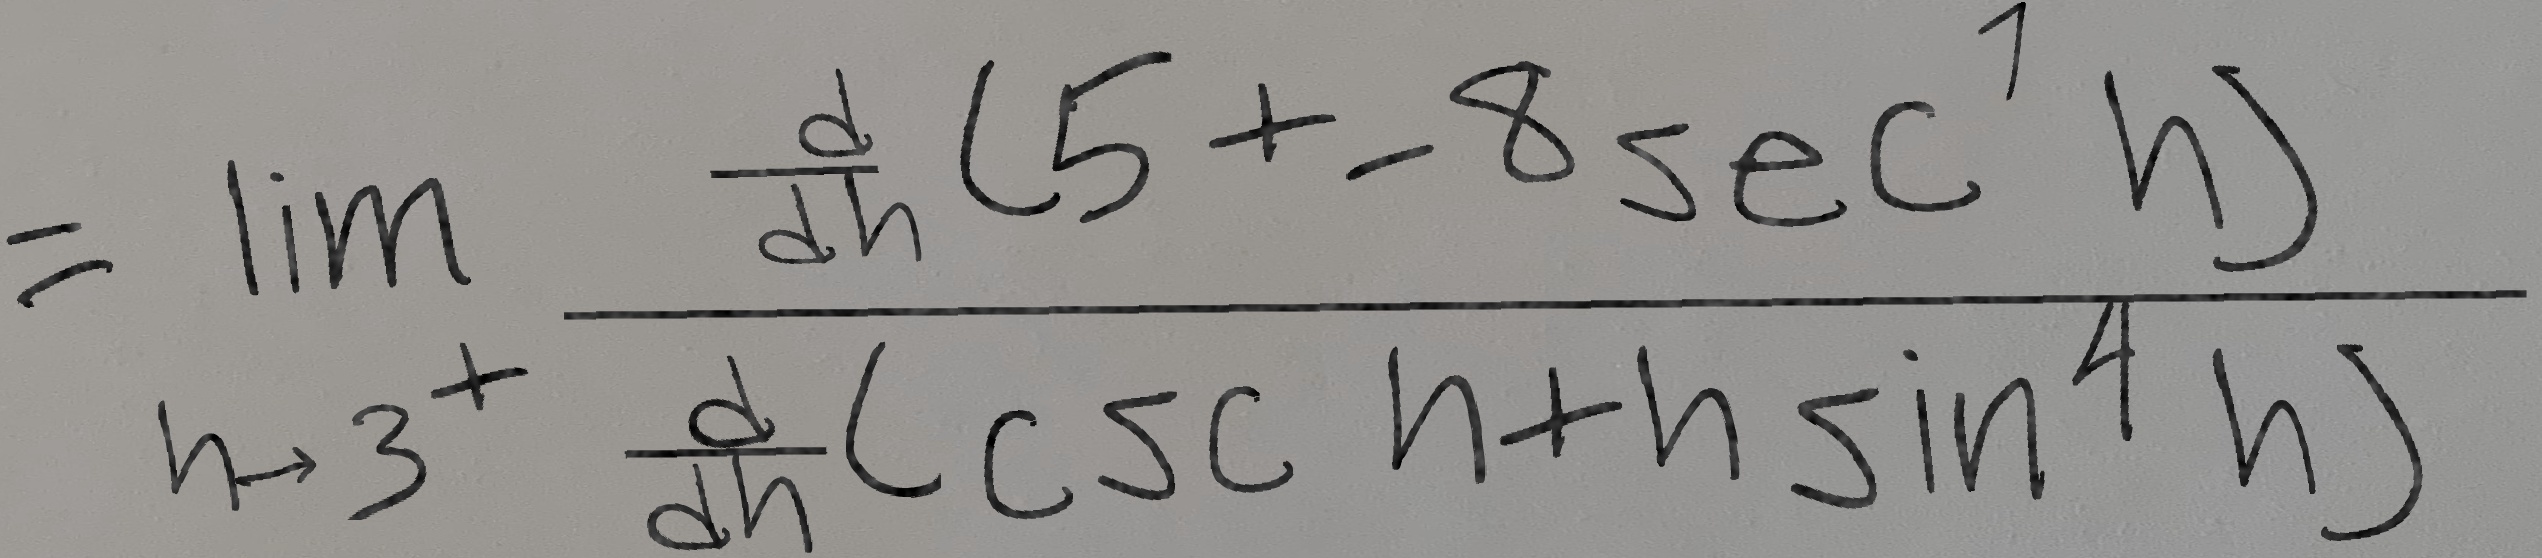 = \lim_{h \to 3^+} \frac{\frac{d}{dh}(5+-8\sec^1 h)}{\frac{d}{dh}(\csc h+h\sin^4 h)}